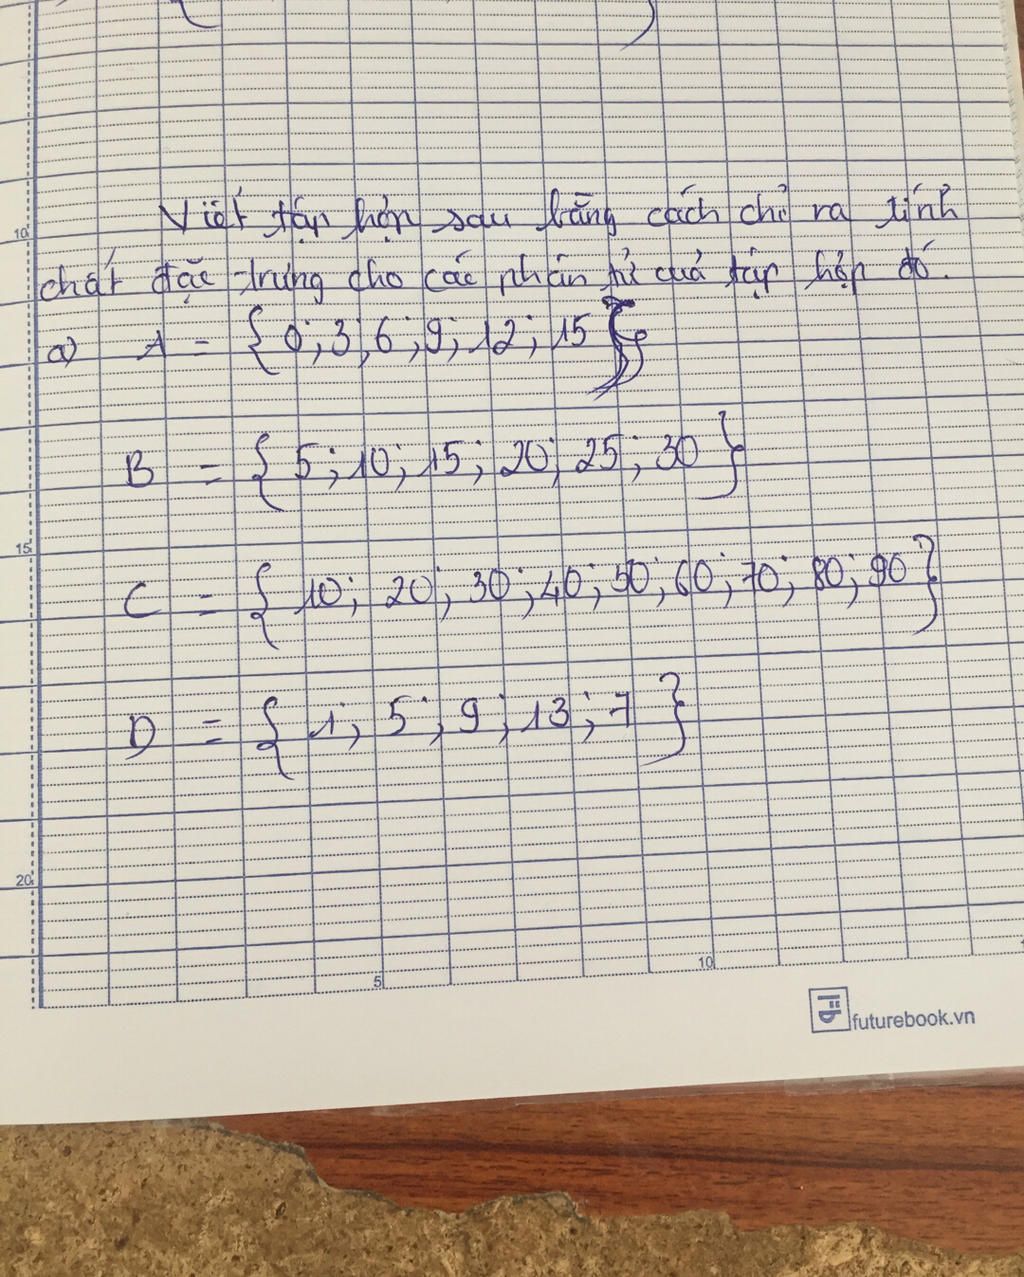 Viết tập hợp sau bằng cách chỉ ra tính
chất đặc trưng cho các phần tử quả tập hợp đó.
a) A = { 0; 3; 6; 9; 12; 15 }
B = { 5; 10; 15; 20; 25; 30 }
C = { 10; 20; 30; 40; 50; 60; 70; 80; 90 }
D = { 1; 5; 9; 13; 7 }
10
15
20
5
10
futurebook.vn